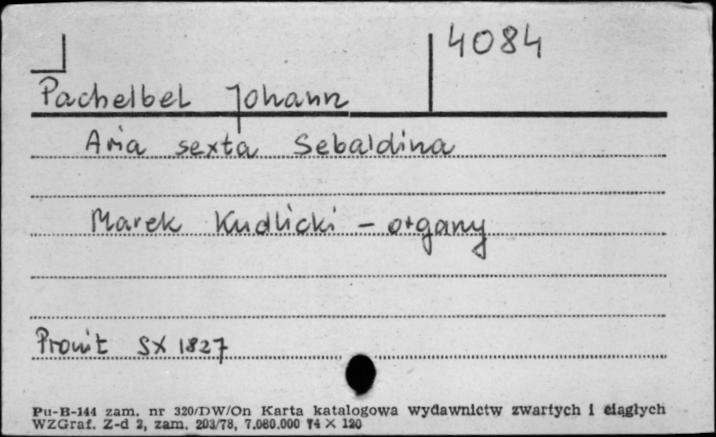 4084
Pachelbel Johann
Aria sexta Sebaldina
Marek Kudlicki - organy
Pronit SX 1827
Pu-B-144 zam. nr 320/DW/On Karta katalogowa wydawnictw zwartych i ciągłych
WZGraf. Z-d 2, zam. 203/78, 7.080.000 74 X 120